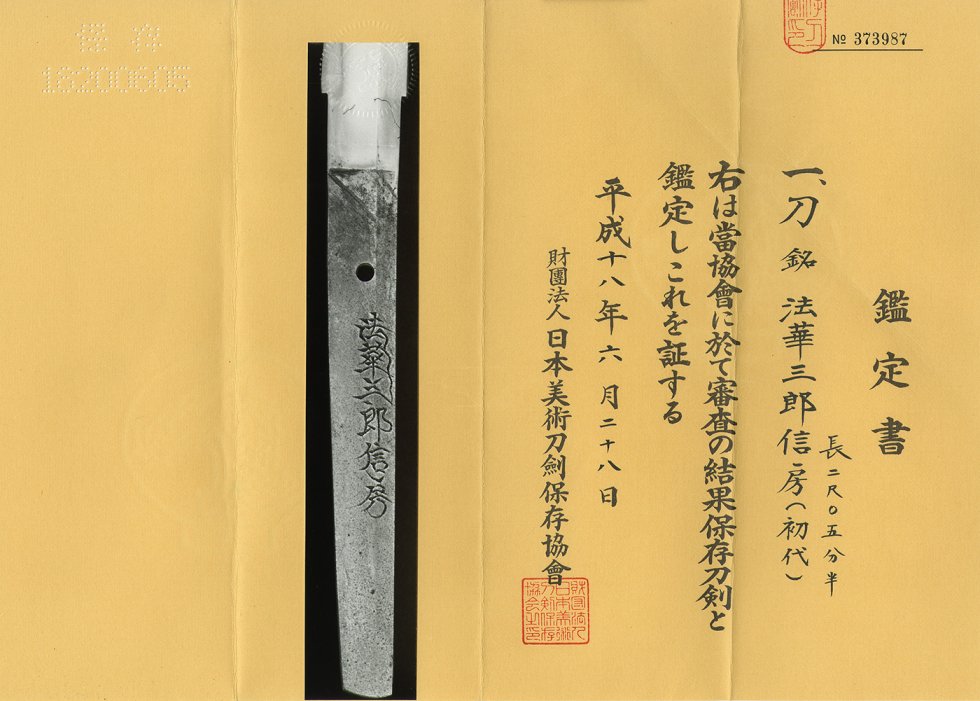 № 373987
鑑定書
一、刀 銘 法華三郎信房(初代)
長二尺〇五分半
右は當協會に於て審査の結果保存刀剣と
鑑定しこれを証する
平成十八年六月二十八日
財團法人日本美術刀劍保存協會
法華三郎信房